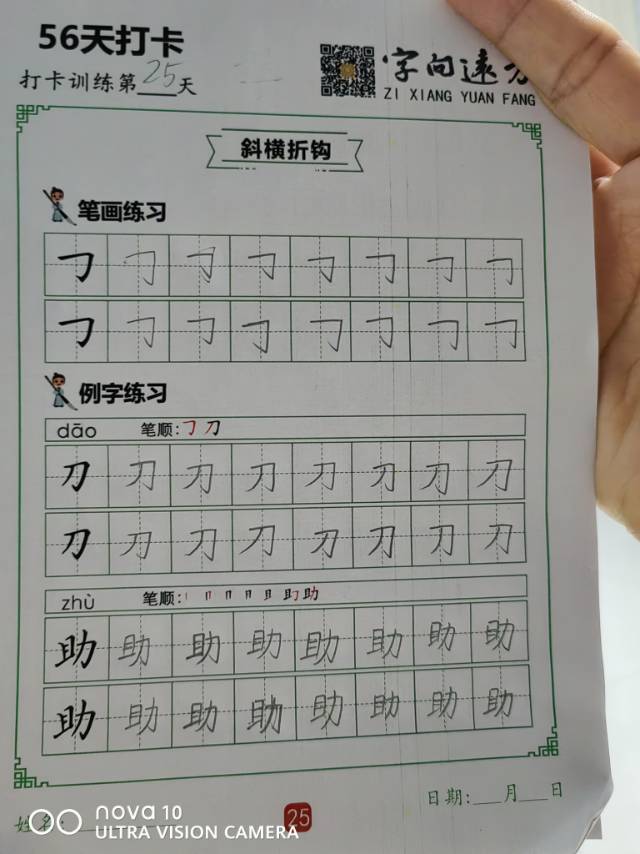 56天打卡
打卡训练第25天
字向远方
ZI XIANG YUAN FANG
斜横折钩
笔画练习
㇆ ㇆ ㇆ ㇆ ㇆ ㇆ ㇆ ㇆
㇆ ㇆ ㇆ ㇆ ㇆ ㇆ ㇆ ㇆
例字练习
dāo 笔顺:㇆ 刀
刀 刀 刀 刀 刀 刀 刀 刀
刀 刀 刀 刀 刀 刀 刀 刀
zhù 笔顺:
助 助 助 助 助 助 助 助
助 助 助 助 助 助 助 助
日期:___月___日
姓名:
25
nova 10
ULTRA VISION CAMERA